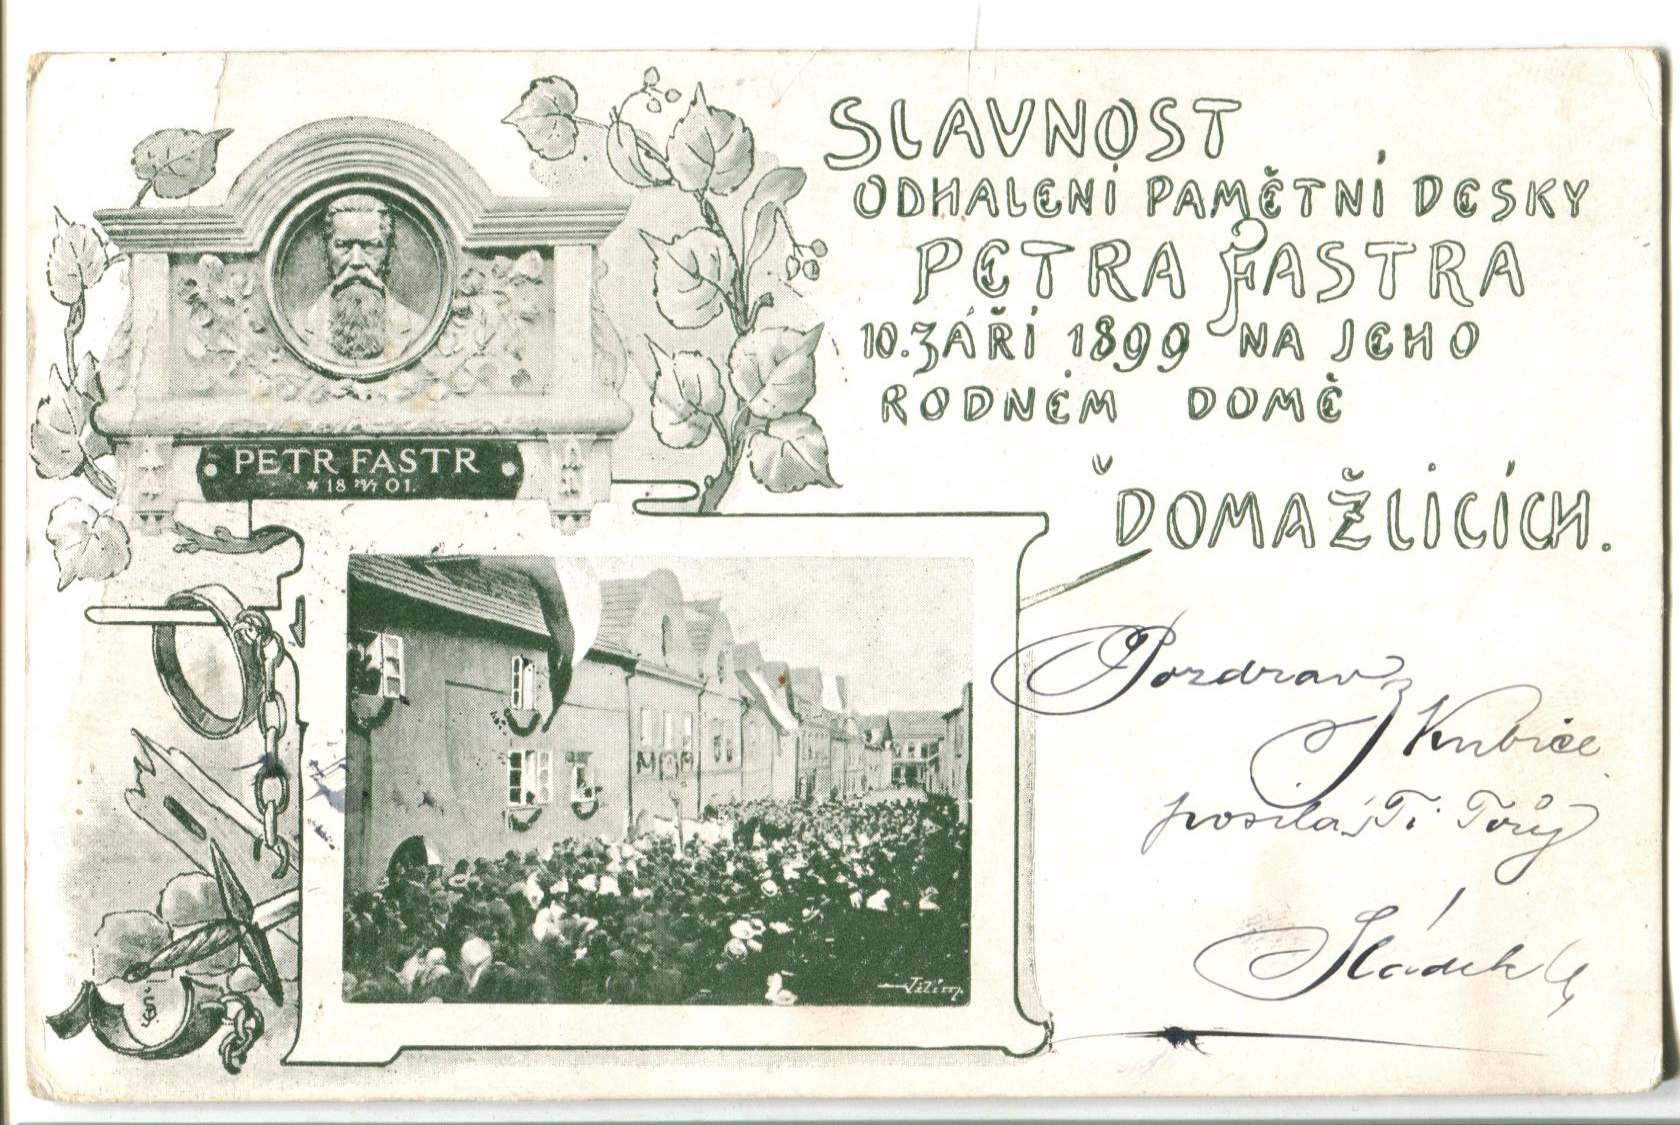 SLAVNOST
ODHALENÍ PAMĚTNÍ DESKY
PETRA FASTRA
10. ZÁŘÍ 1899 NA JEHO
RODNÉM DOMĚ
V DOMAŽLICÍCH.
PETR FASTR
* 18 29/7 01.
Pozdrav
z Kubice
posílá Ti Tvůj
Sládek